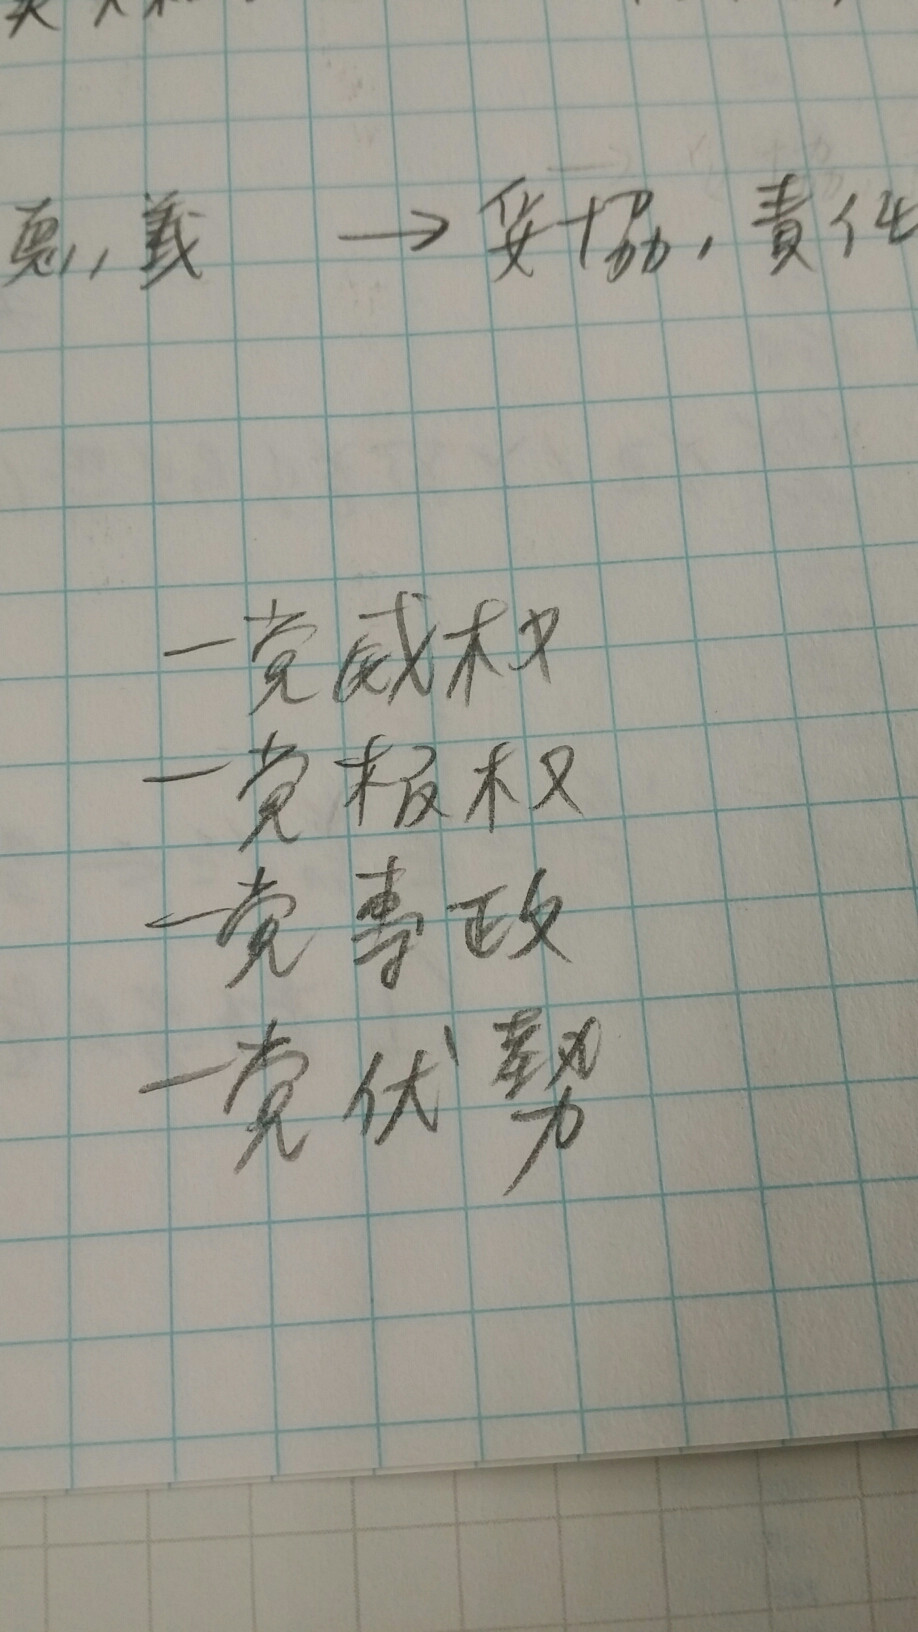 義 → 妥協, 責任
一党威权
一党极权
一党専政
一党优势